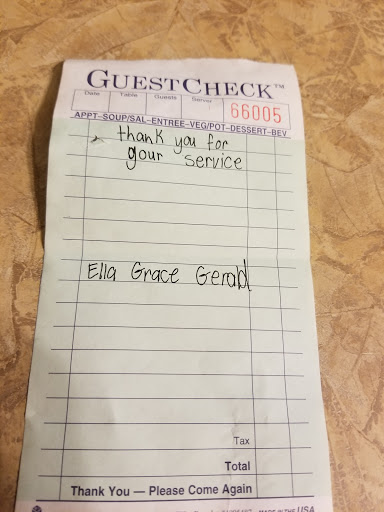 GUESTCHECK™
Date Table Guests Server
66005
APPT-SOUP/SAL-ENTREE-VEG/POT-DESSERT-BEV
thank you for
gour service
Ella Grace Gerald
Tax
Total
Thank You — Please Come Again
MADE IN THE USA